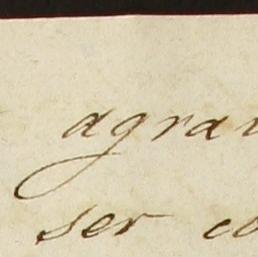 agrav
ser co